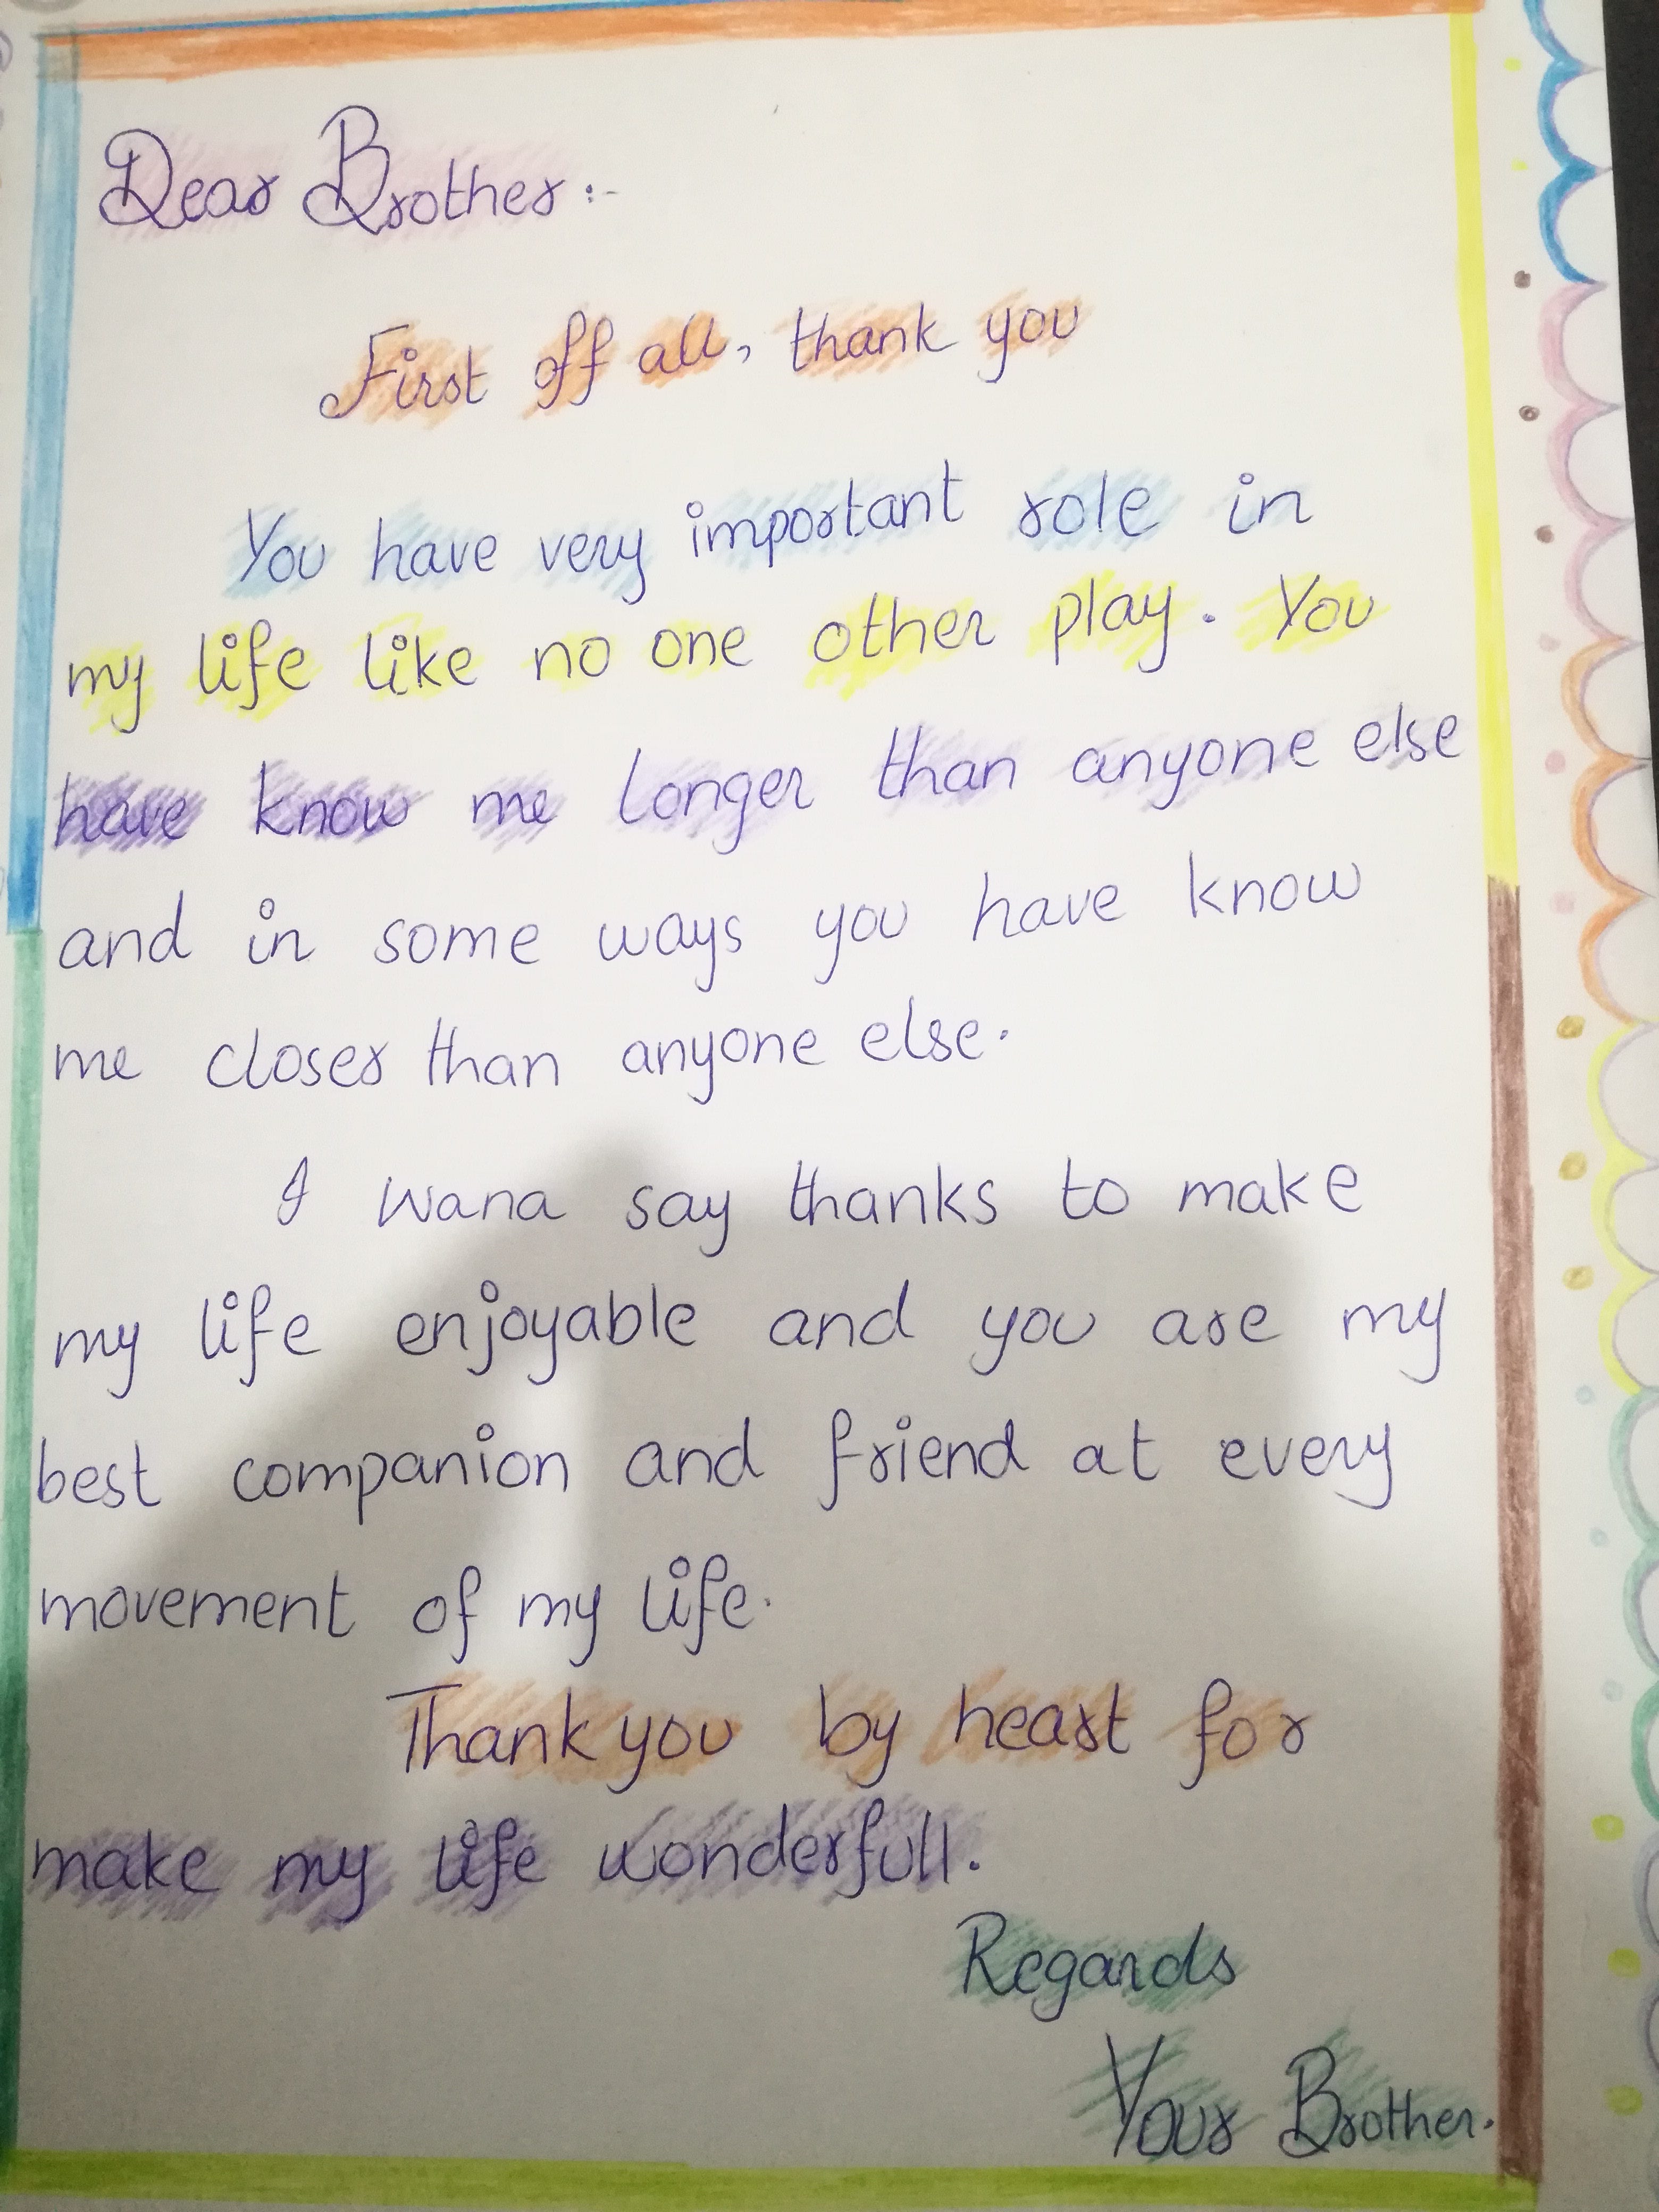 Dear Brother :-
First off all, thank you
You have very important role in
my life like no one other play. You
have know me longer than anyone else
and in some ways you have know
me closer than anyone else.
I wana say thanks to make
my life enjoyable and you are my
best companion and friend at every
movement of my life.
Thank you by heart for
make my life wonderfull.
Regards
Your Brother.